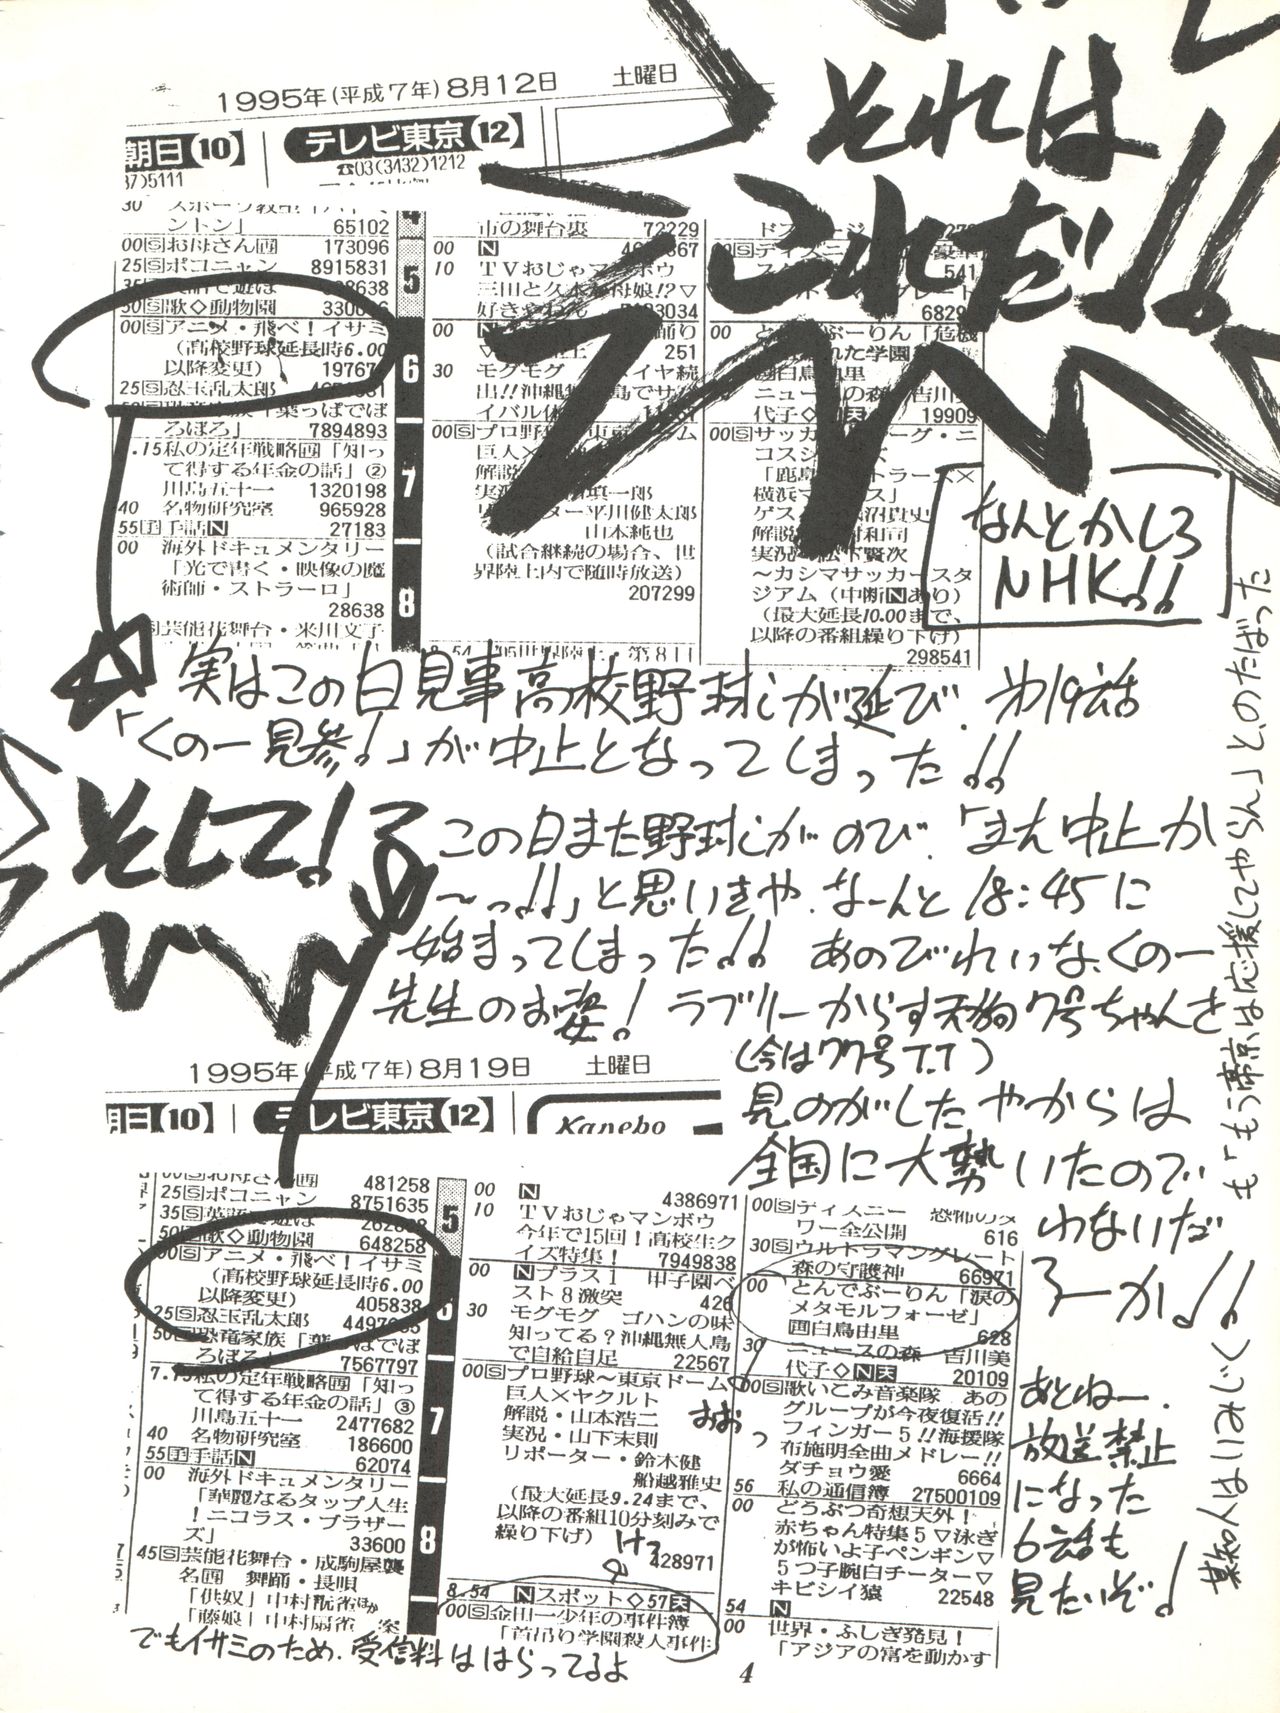 それは
これだ!!
1995年(平成7年)8月12日 土曜日
朝日(10) テレビ東京(12)
37)5111 ☎03(3432)1212
ントン」 65102
00Sお母さん 173096
25Sポコニャン 8915831
30S歌◇動物園
00Sアニメ・飛べ!イサミ
(高校野球延長時6.00
以降変更)
25S忍玉乱太郎
ろぼろ」 7894893
.15私の定年戦略 「知っ
て得する年金の話」②
川島五十一 1320198
40 名物研究室 965928
55手 手話N 27183
00 海外ドキュメンタリー
「光で書く・映像の魔
術師・ストラーロ」
28638
S芸能花舞台・米川文子
4
5
6
7
8
市の舞台裏 72229
00 N
10 TVおじゃマンボウ
三田と久本が母娘!?▽
00
251
30 モグモグ
00Sプロ野球
解説
実況
山本純也
(試合継続の場合、世
界陸上内で随時放送)
207299
541
代子◇N天 19909
00Sサッカー
~カシマサッカースタ
ジアム(中断Nあり)
(最大延長10.00まで、
以降の番組繰り下げ)
298541
なんとかしろ
NHK!!
実はこの日見事高校野球が延び、第19話
「くの一見参!」が中止となってしまった!!
そして!
この日また野球がのび、「また中止か
〜っ!!」と思いきや、なーんと18:45に
始まってしまった!! あのびれいな、くの一
先生のお姿! ラブリーからす天狗7号ちゃんを
(今は77号T.T)
見のがしたやからは
全国に大勢いたので
わないだ
ろーか!!
1995年(平成7年)8月19日 土曜日
朝日(10) テレビ東京(12) Kanebo
00Sお母さん 481258
25Sポコニャン 8751635
35S英語で遊ぼ
50S歌◇動物園 648258
00Sアニメ・飛べ!イサミ
(高校野球延長時6.00
以降変更) 405838
25S忍玉乱太郎
50S恐竜家族「葉っぱでぼ
ろぼろ」 7567797
7.15私の定年戦略 「知っ
て得する年金の話」③
川島五十一 2477682
40 名物研究室 186600
55手 手話N 62074
00 海外ドキュメンタリー
「華麗なるタップ人生
!ニコラス・ブラザー
ズ」 33600
45S芸能花舞台・成駒屋襲
名 舞踊・長唄
「供奴」中村翫雀ほか
「藤娘」中村扇雀
5
6
7
8
00 N 4386971
10 TVおじゃマンボウ
今年で15回!高校生ク
イズ特集! 7949838
00 Nプラス1 甲子園ベ
スト8激突 426
30 モグモグ ゴハンの味
知ってる?沖縄無人島
で自給自足 22567
00Sプロ野球〜東京ドーム
巨人×ヤクルト
解説・山本浩二
実況・山下末則
リポーター・鈴木健
船越雅史
(最大延長9.24まで、
以降の番組10分刻みで
繰り下げ)
428971
けっ
8.54 Nスポット◇57天
00S金田一少年の事件簿
「首吊り学園殺人事件
00Sディズニー 恐怖のタ
ワー全公開 616
30Sウルトラマングレート
森の守護神 66971
00 とんでぶーりん「涙の
メタモルフォーゼ」
画白鳥由里 628
30 ニュースの森 吉川美
代子◇N天 20109
00S歌いこみ音楽隊 あの
グループが今夜復活!!
フィンガー5!!海援隊
布施明全曲メドレー!!
ダチョウ愛 6664
56 私の通信簿 27500109
00 どうぶつ奇想天外!
赤ちゃん特集5▽泳ぎ
が怖いよ子ペンギン▽
5つ子腕白チーター▽
キビシイ猿 22548
54 N
00 世界・ふしぎ発見!
「アジアの富を動かす
おおっ
あとねー、
放送禁止
になった
6話も
見たいぞ!
某知人はいみじく
も「もう帝京は応援してやらん」と、のたばった
でもイサミのため、受信料ははらってるよ
4